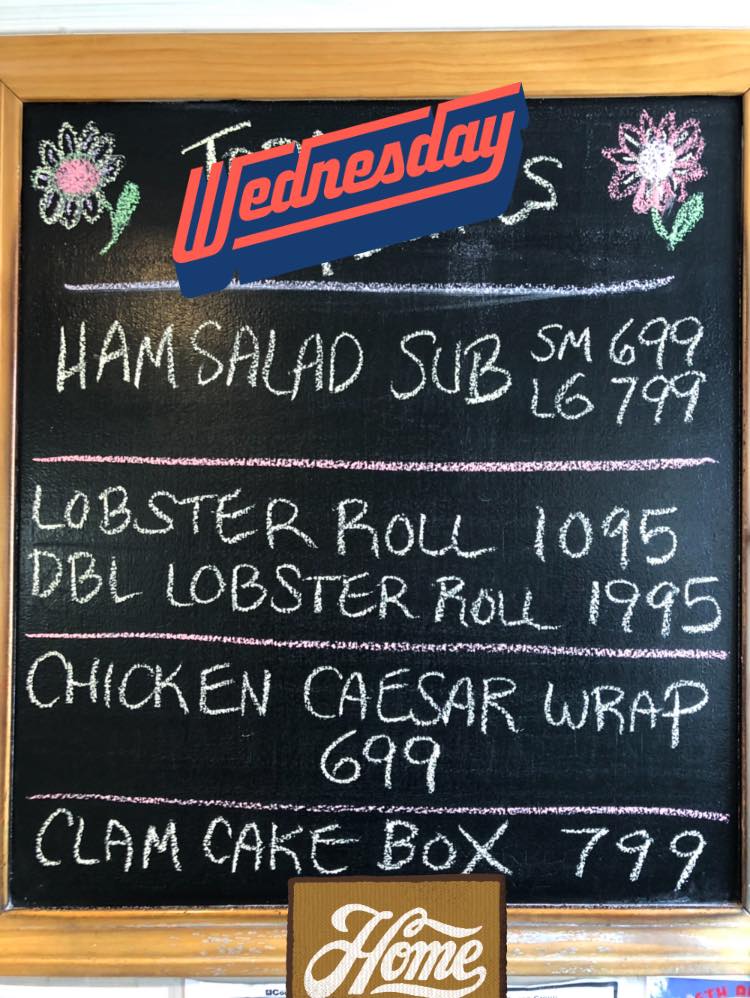 Wednesday
HAM SALAD SUB SM 699
LG 799
LOBSTER ROLL 1095
DBL LOBSTER ROLL 1995
CHICKEN CAESAR WRAP
699
CLAM CAKE BOX 799
Home